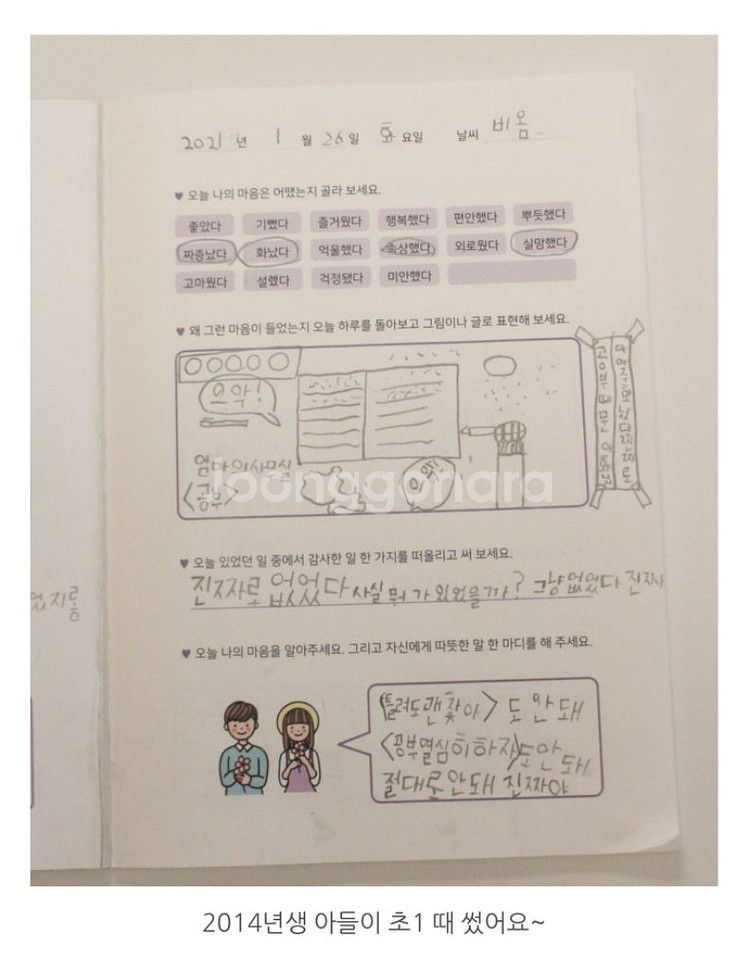 2021 년 1 월 26 일 화 요일 날씨 비옴
♥ 오늘 나의 마음은 어땠는지 골라 보세요.
좋았다 기뻤다 즐거웠다 행복했다 편안했다 뿌듯했다
짜증났다 화났다 억울했다 속상했다 외로웠다 실망했다
고마웠다 설렜다 걱정됐다 미안했다
♥ 왜 그런 마음이 들었는지 오늘 하루를 돌아보고 그림이나 글로 표현해 보세요.
으악!
엄마의사무실
<공부>
으악
joonggonara
♥ 오늘 있었던 일 중에서 감사한 일 한 가지를 떠올리고 써 보세요.
진짜로 없었다 사실 뭐가 있었을까? 그냥 없었다 진짜
었지롱
♥ 오늘 나의 마음을 알아주세요. 그리고 자신에게 따뜻한 말 한 마디를 해 주세요.
<틀려도괜찮아> 도 안돼
<공부열심히하자>도안돼
절대로안돼 진짜야
2014년생 아들이 초1 때 썼어요~